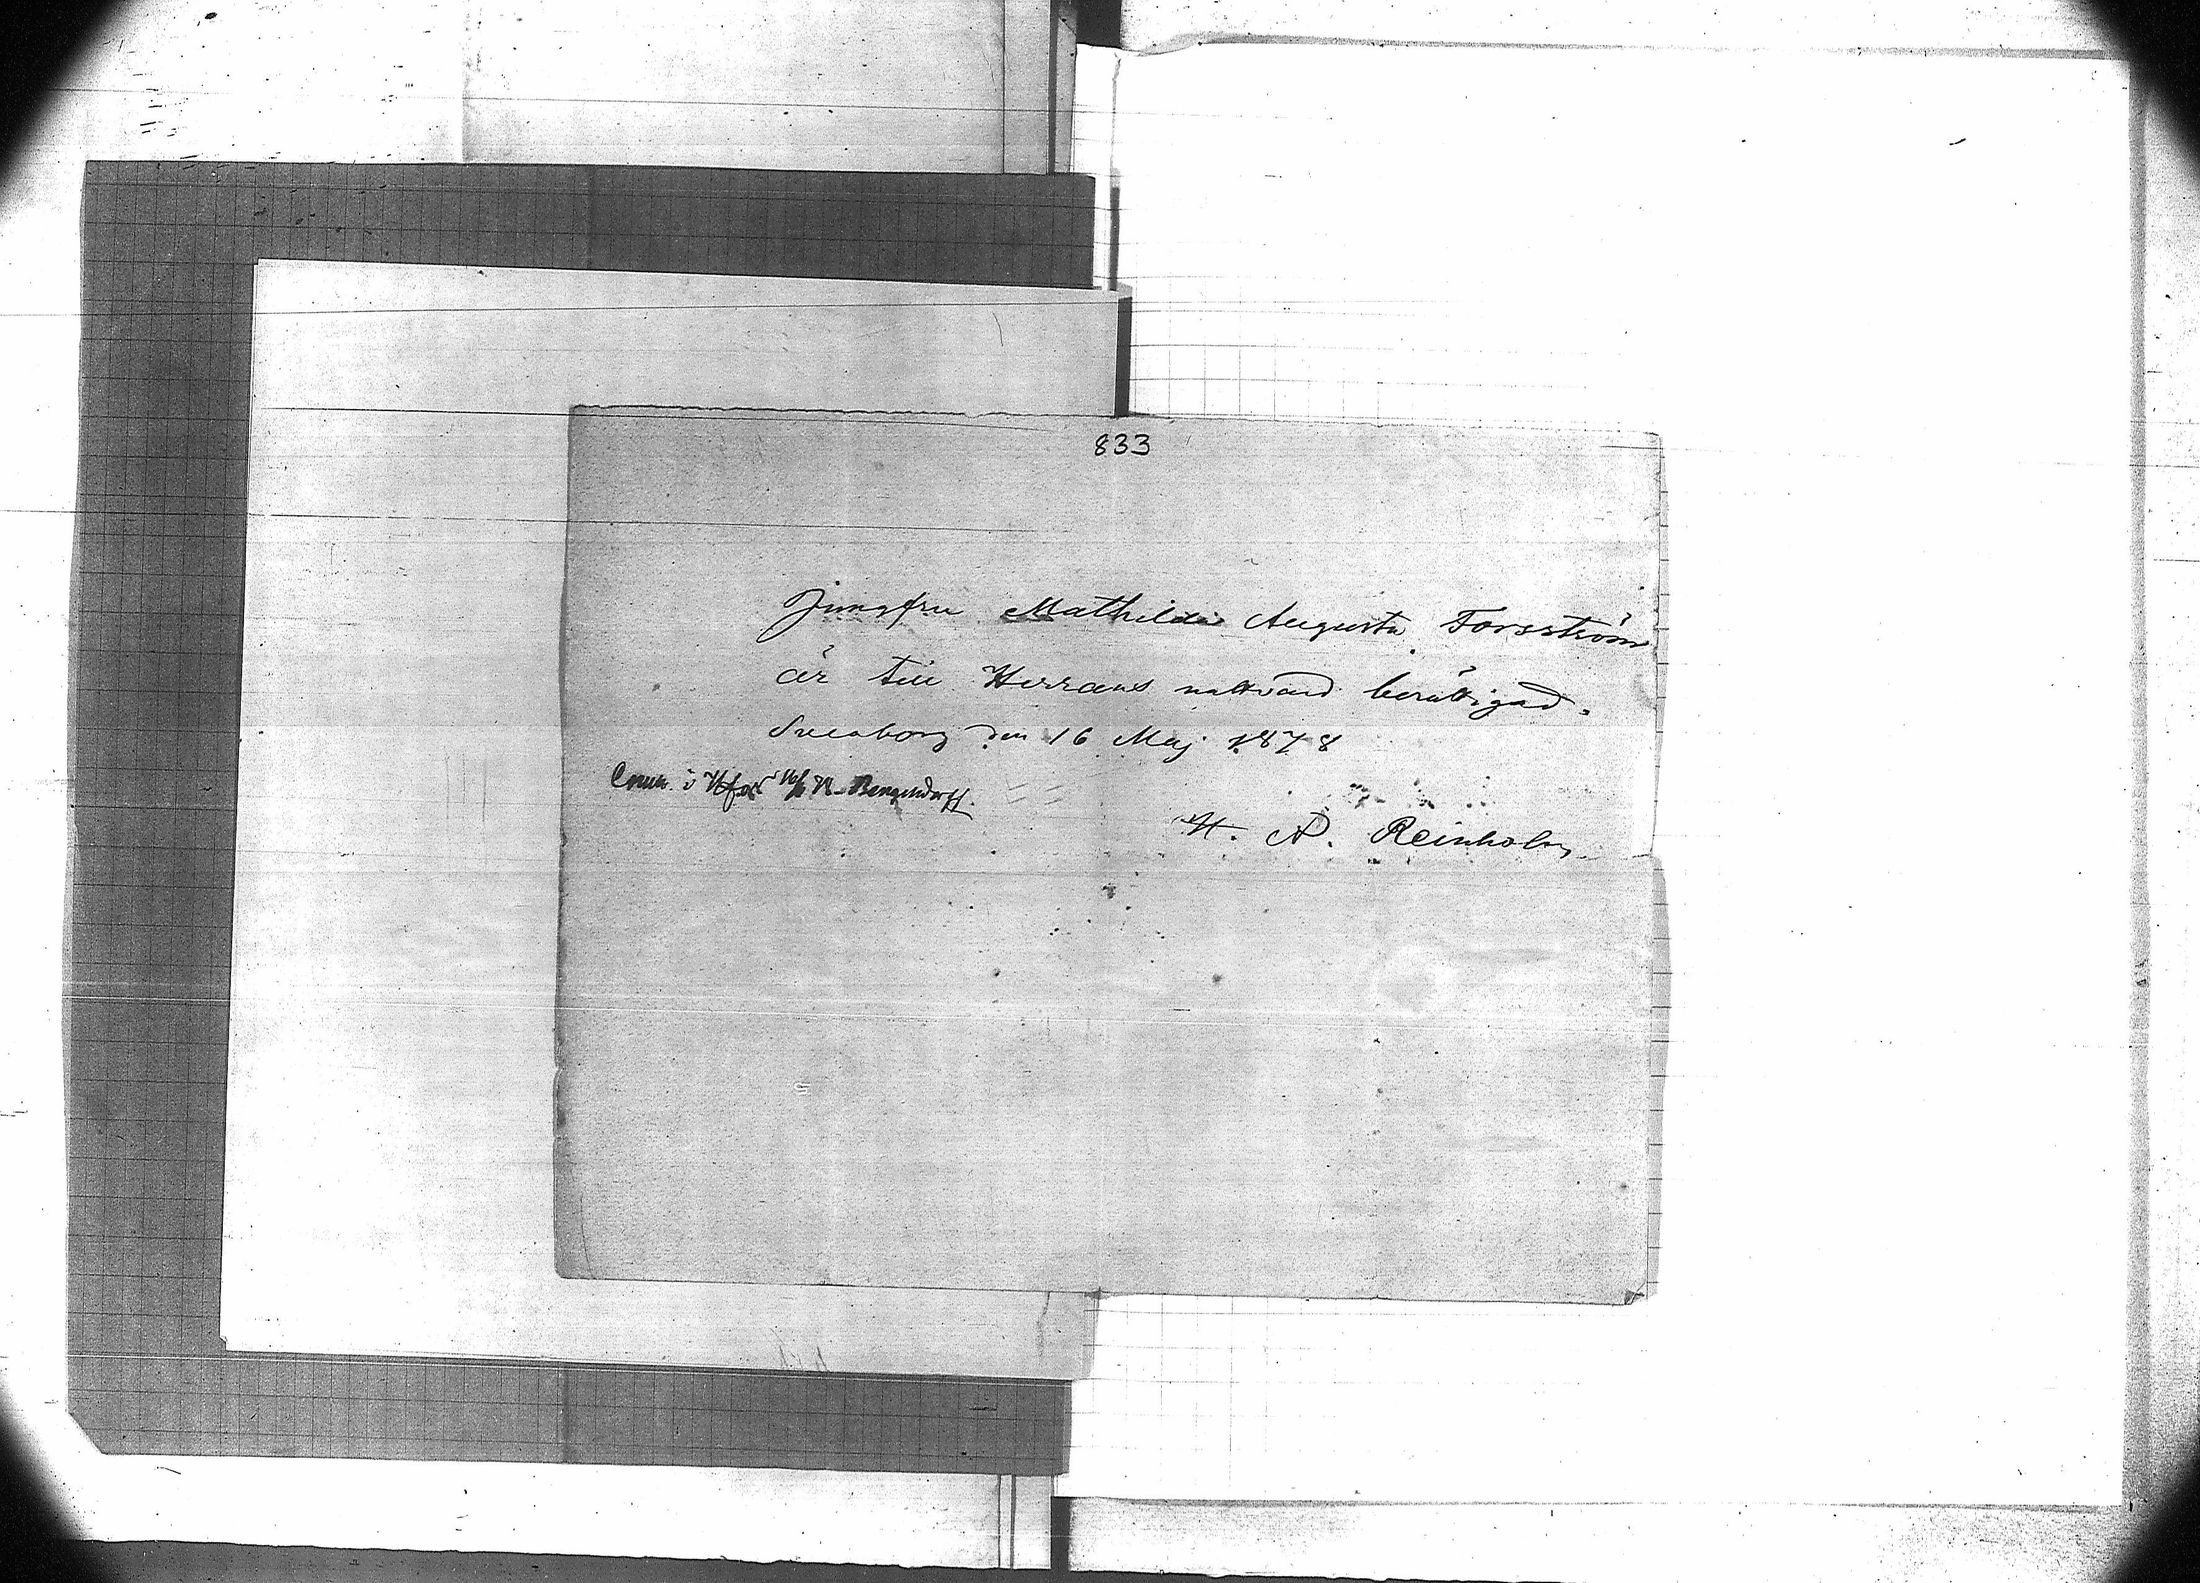 833
Jungfru Mathilda Augusta Forsström
är till Herrans nattvard berättigad.
Sveaborg den 16 Maj 1878
Comm. i Hfors N. Bengelsdorff.
H. A. Reinholm